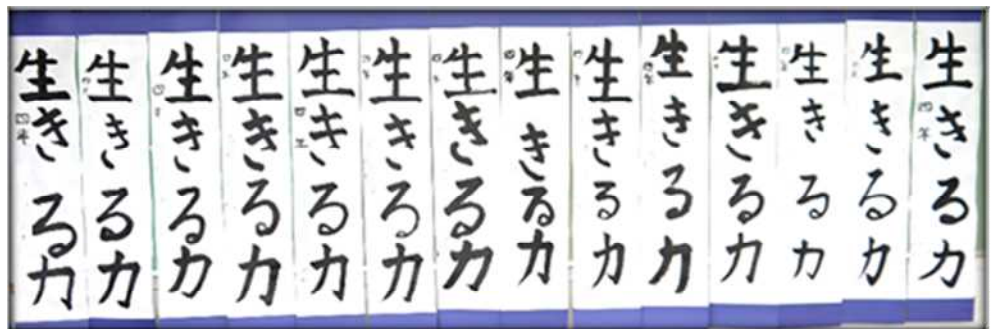 生きる力
四年
生きる力
生きる力
生きる力
生きる力
四年
生きる力
生きる力
四年
生きる力
生きる力
生きる力
生きる力
生きる力
生きる力
生きる力
四年